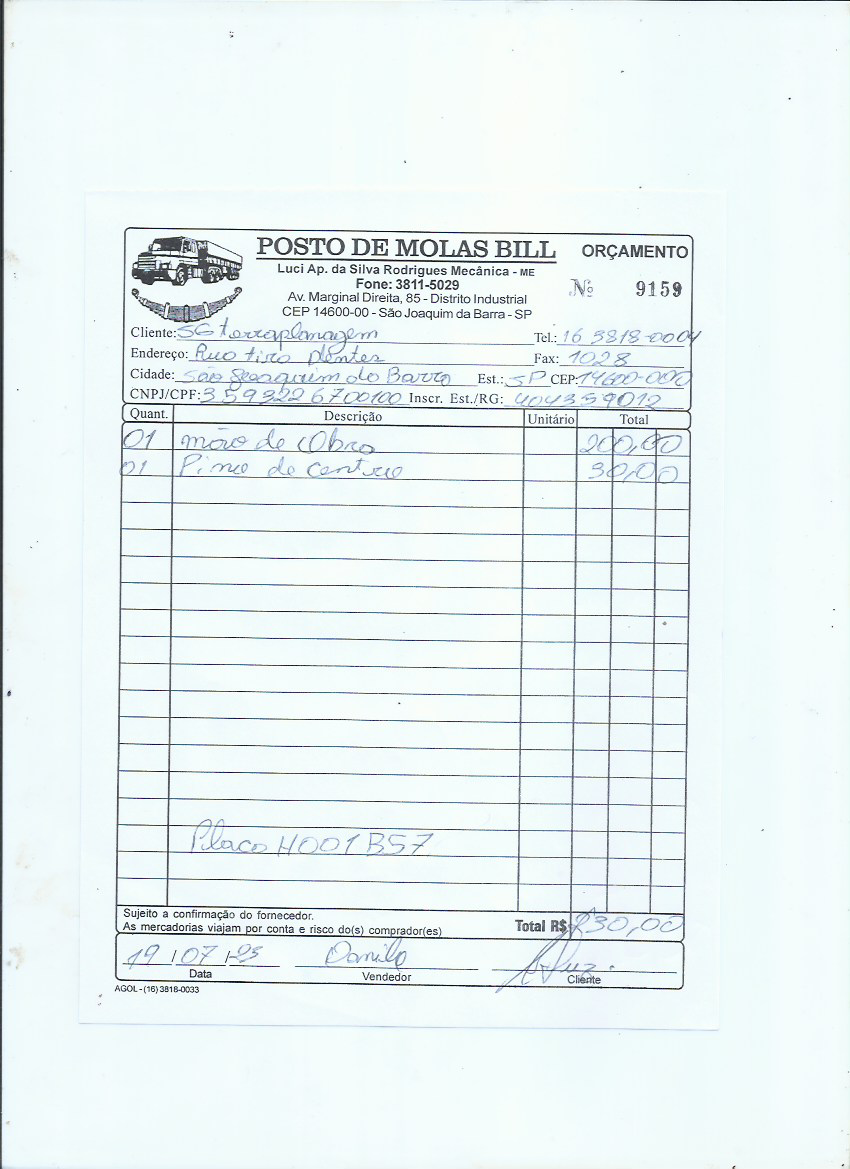 POSTO DE MOLAS BILL ORÇAMENTO
Luci Ap. da Silva Rodrigues Mecânica - ME
Fone: 3811-5029
Nº 9159
Av. Marginal Direita, 85 - Distrito Industrial
CEP 14600-00 - São Joaquim da Barra - SP
Cliente: SG terraplanagem Tel.: 16 3818-0004
Endereço: Rua tira dentes Fax: 1028
Cidade: São Joaquim da Barra Est.: SP CEP: 14600-000
CNPJ/CPF: 3593226700100 Inscr. Est./RG: 404359012
Quant. Descrição Unitário Total
01 mão de Obra 200,00
01 Pino de centro 30,00
Placa H001B57
Sujeito a confirmação do fornecedor.
As mercadorias viajam por conta e risco do(s) comprador(es) Total R$ 230,00
19 / 07 / 23 Danilo
Data Vendedor Cliente
AGOL - (16) 3818-0033